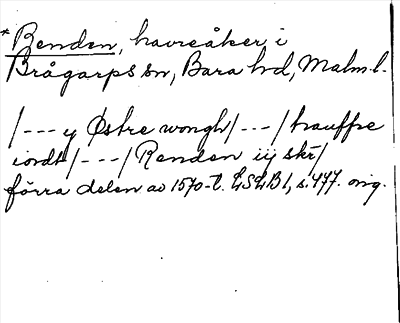 *Renden, havreåker i
Brågarps sn, Bara hd, Malm.l.
/---y Østre wongh/---/hauffre
iordt/---/Renden iij skr/
förra delen av 1570-t. LSLB 1, s. 477. orig.